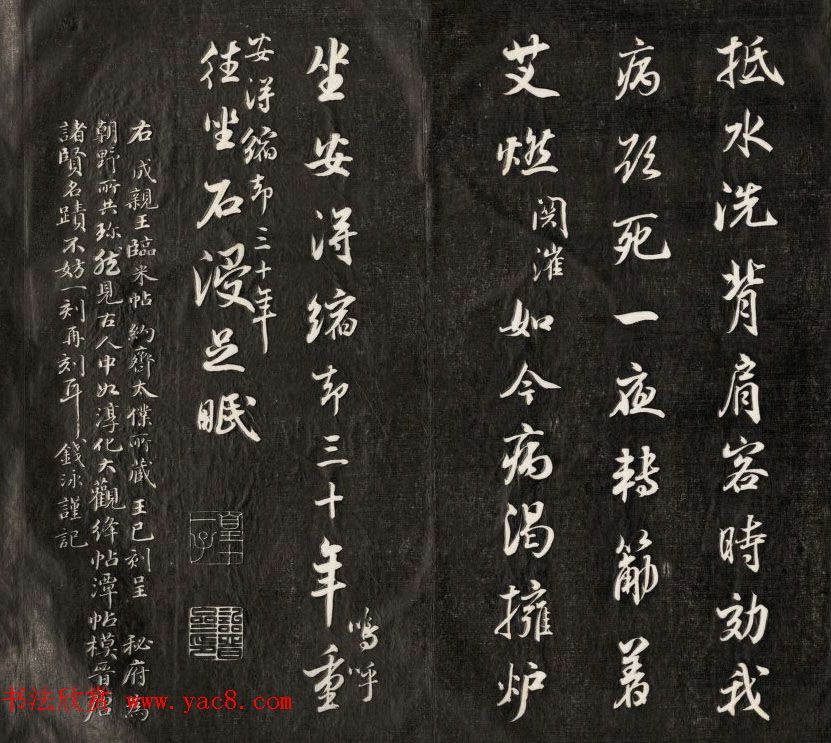 抵水洗背肩客時効我
病欲死一夜轉筋著
艾燃 関灌 如今病渴擁炉
坐安得縮却三十年重 嗚呼
安得縮却三十年
往坐石浸足眠
右成親王臨米帖約齋太僕所藏王已刻呈秘府為
朝野所共珎然見古人中如淳化大觀絳帖潭帖模晉唐
諸賢名蹟不妨一刻再刻耳錢泳謹記
皇十一子
书法欣赏 www.yac8.com